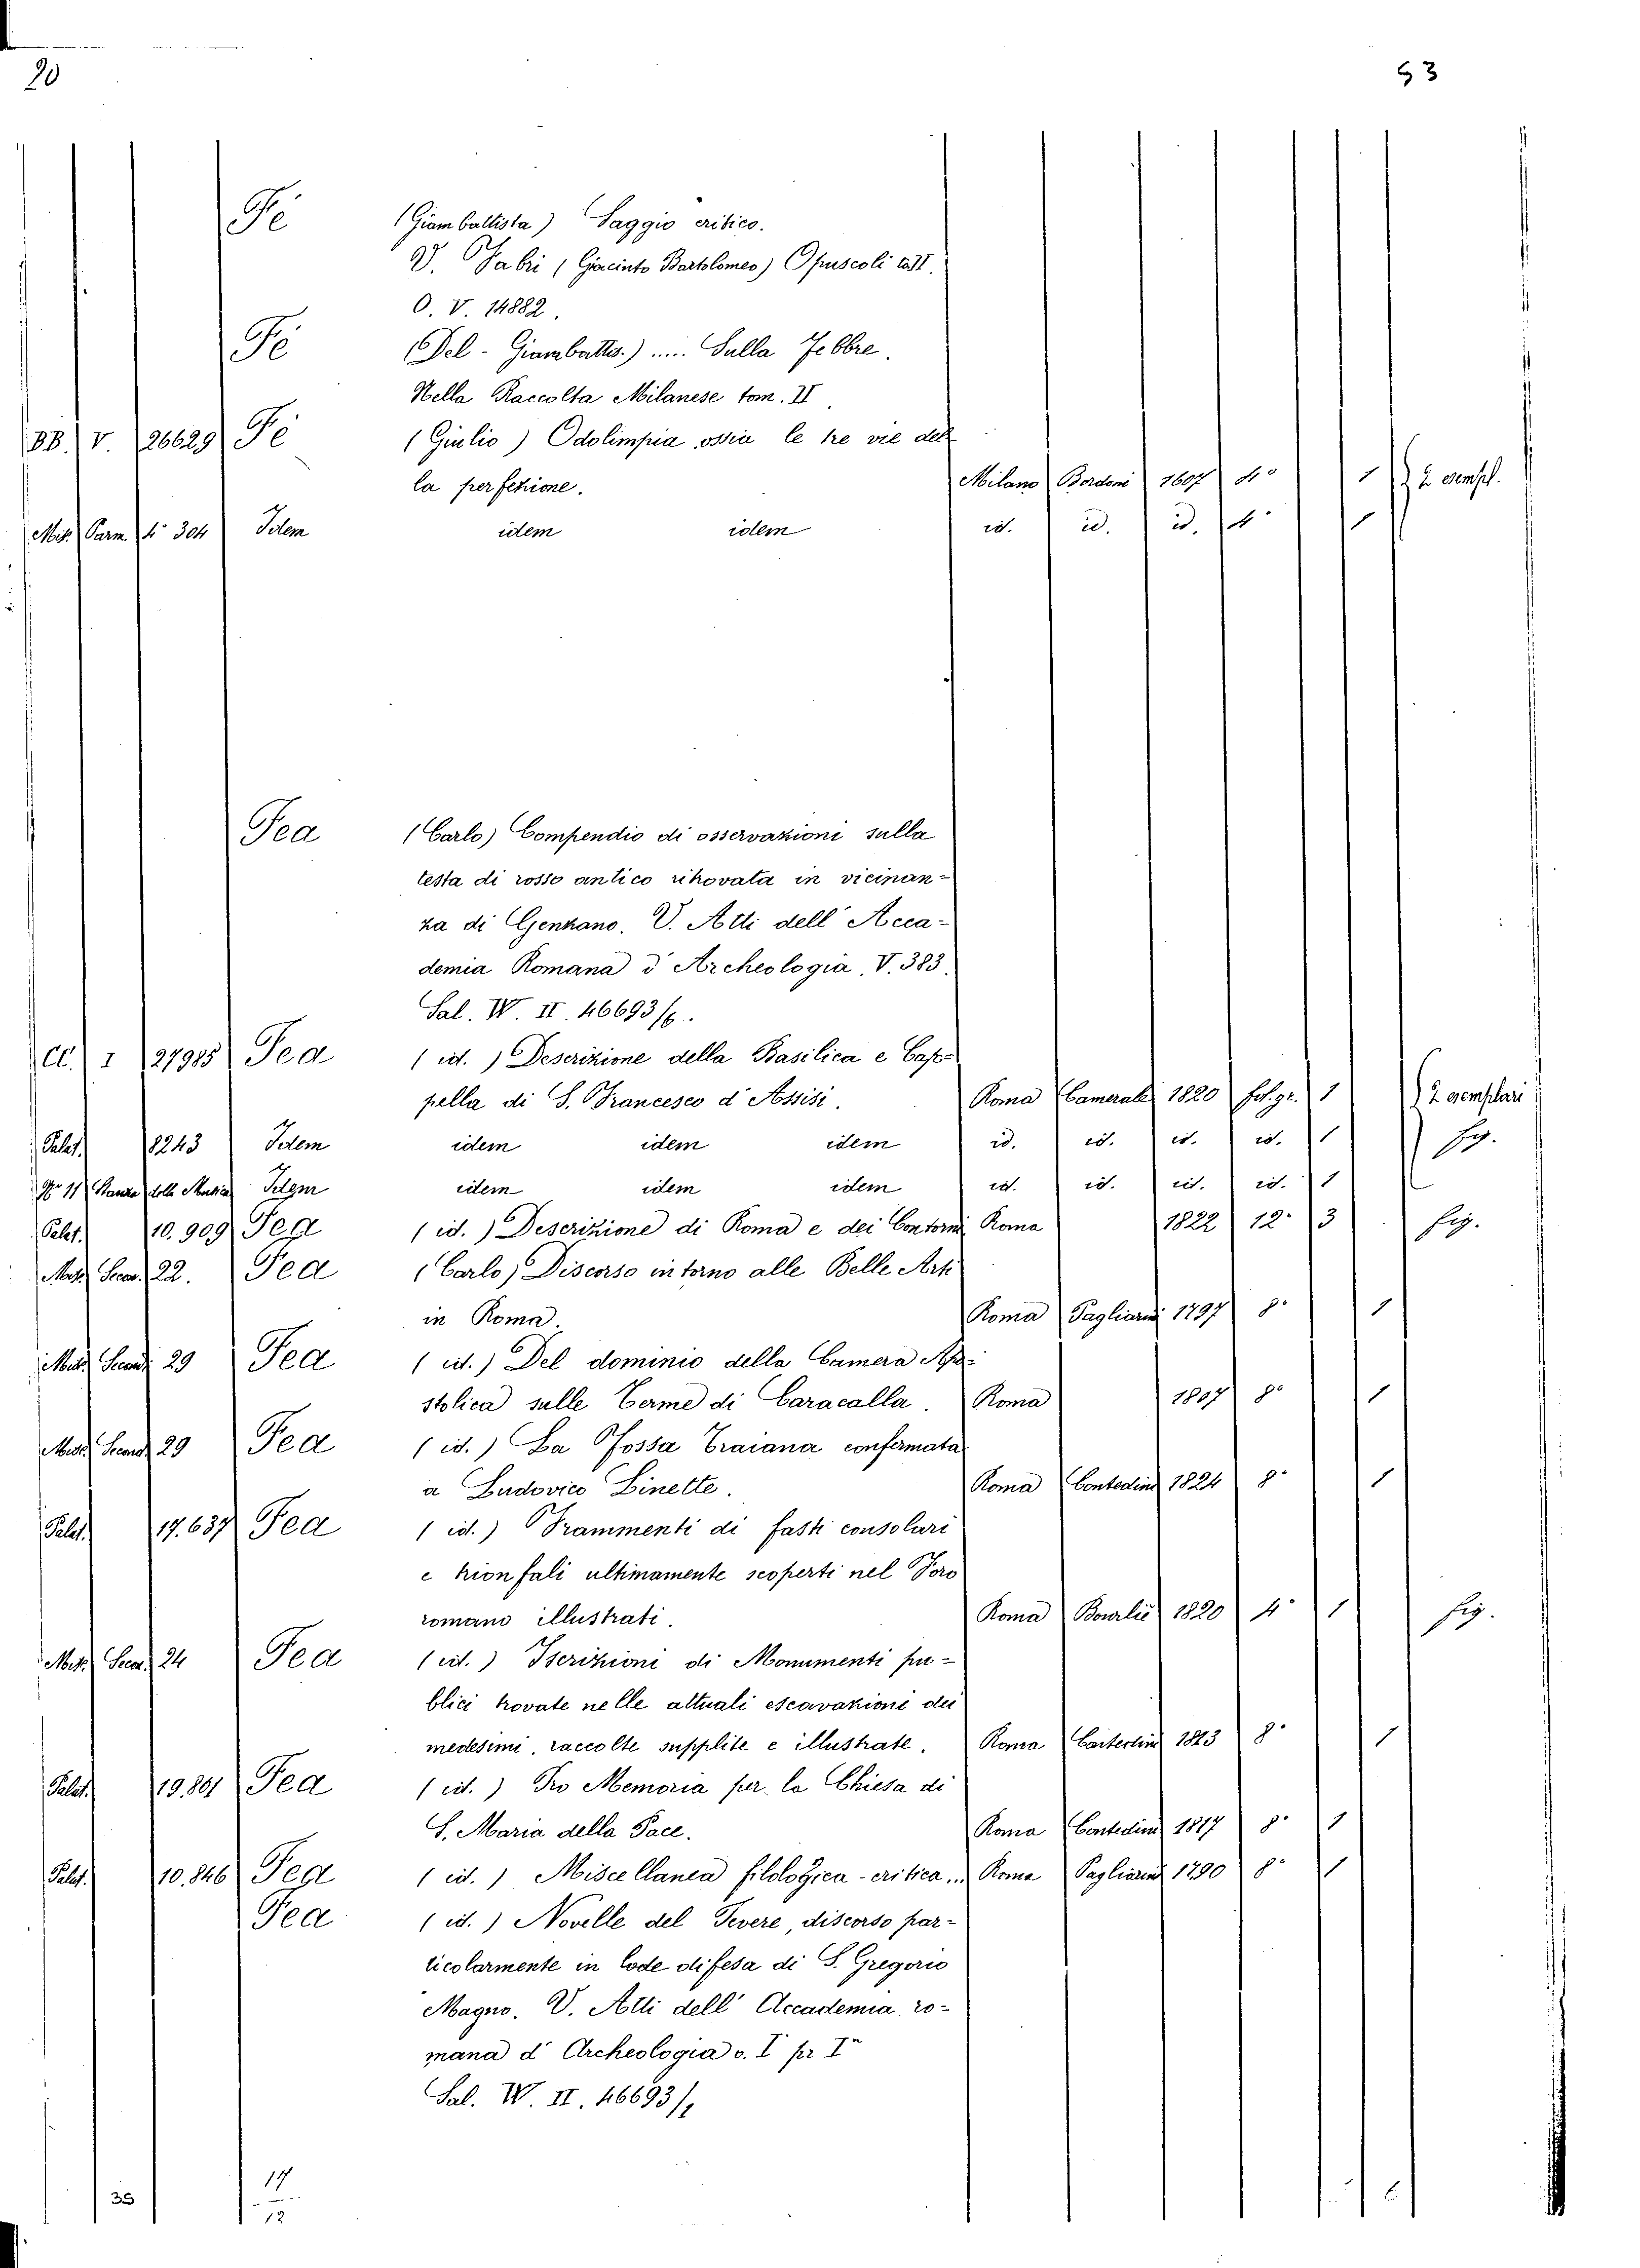 20 53
Fè (Giamballista) Saggio critico.
V. Fabri (Giacinto Bartolomeo) Opuscoli
O. V. 14882.
Fè (Del - Giambatts.) .... Sulla Febbre.
Nella Raccolta Milanese tom. II
BB. V. 26629 Fè (Giulio) Odolimpia ossia le tre vie del
la perfezione. Milano Bordoni 1607 4° 1 2 esempl.
Misc. Parm. 4° 304 Idem idem idem id. id. id. 4° 1
Fea (Carlo) Compendio di osservazioni sulla
testa di rosso antico ritrovata in vicinan-
za di Genzano. V. Atti dell' Acca-
demia Romana d' Archeologia, V. 383.
Sal. W. II. 46693/6.
CC. I 27985 Fea (id.) Descrizione della Basilica e Cap-
pella di S. Francesco d'Assisi. Roma Camerale 1820 fol. gr. 1 2 esemplari
Palat. 8243 Idem idem idem idem id. id. id. id. 1 fig.
N° 11 Stanza della Musica Idem idem idem idem id. id. id. id. 1
Palat. 10.909 Fea (id.) Descrizione di Roma e dei Contorni Roma 1822 12° 3 fig.
Misc. Secon. 22. Fea (Carlo) Discorso intorno alle Belle Arti
in Roma. Roma Pagliarini 1797 8° 1
Misc. Second. 29 Fea (id.) Del dominio della Camera Apo-
stolica sulle Terme di Caracalla. Roma 1807 8° 1
Misc. Second. 29 Fea (id.) La Fossa Traiana confermata
a Ludovico Linette. Roma Contedini 1824 8° 1
Palat. 17.637 Fea (id.) Frammenti di fasti consolari
e trionfali ultimamente scoperti nel Foro
romano illustrati. Roma Bourlié 1820 4° 1 fig.
Misc. Secon. 24 Fea (id.) Iscrizioni di Monumenti pu-
blici trovate nelle attuali escavazioni dei
medesimi, raccolte supplite e illustrate. Roma 1813 8° 1
Palat. 19.801 Fea (id.) Pro Memoria per la Chiesa di
S. Maria della Pace. Roma Contedini 1817 8° 1
Palat. 10.846 Fea (id.) Miscellanea filologica-critica... Roma Pagliarini 1790 8° 1
Fea (id.) Novelle del Tevere, discorso par-
ticolarmente in lode difesa di S. Gregorio
Magno. V. Atti dell' Accademia ro-
mana d' Archeologia v. I
Sal. W. II. 46693/1
35 17
12